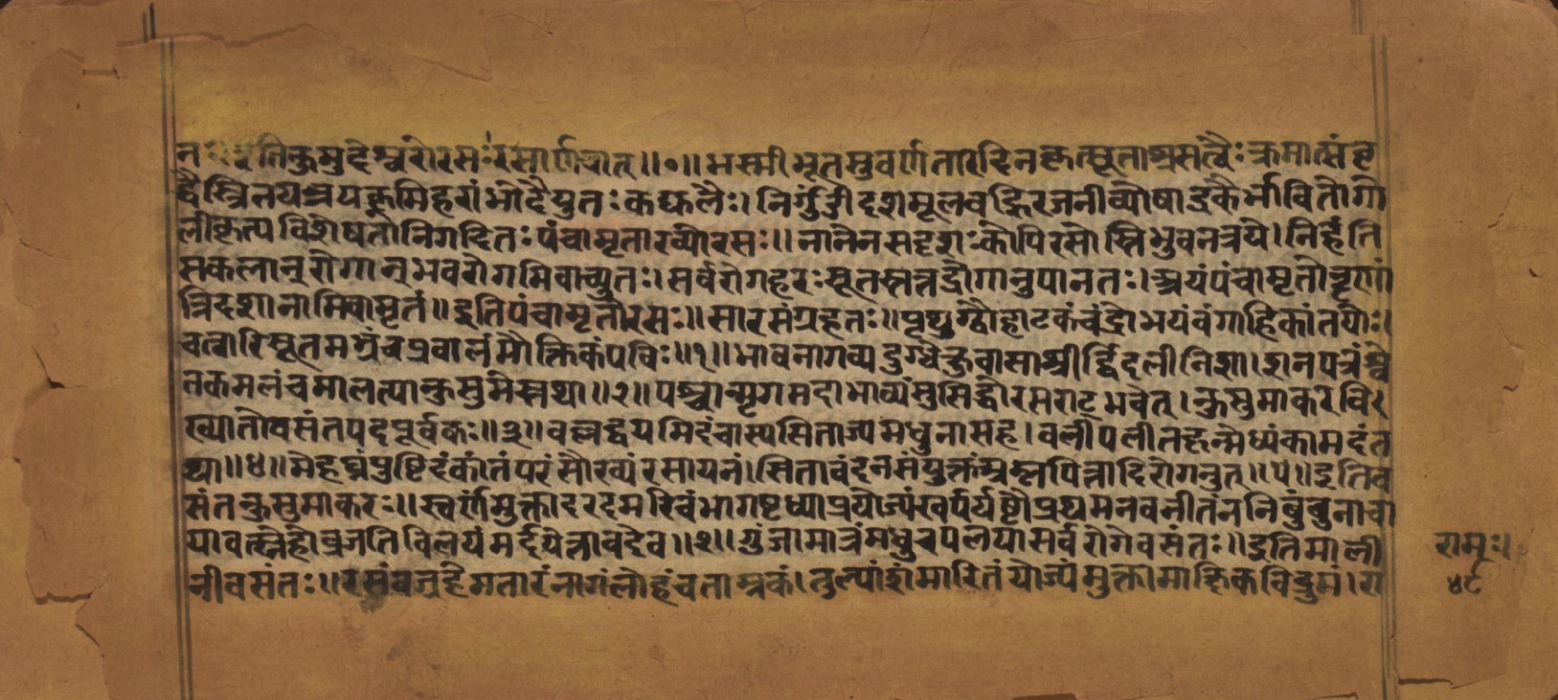 न इतिकुमुदेश्वरोरसःरसार्णवात्॥०॥भस्मीभूतसुवर्णतारदिनकृत्सूताभ्रसत्वैःक्रमात्संवृ
द्वैस्त्रितयभ्रयकुमिहरांभोदैयुतःकट्फलैः।निर्गुंडीदशमूलवह्निरजनीव्योषार्द्रकैर्भावितोगो
लीकृत्पविशेषतोनिगदितःपंचामृताख्योरसः॥नानेनसदृशःकोपिरसोस्तिभुवनत्रये।निहंति
सकलान्रोगान्भवरोगमिवाच्युतः।सर्वरोगहरःसूतस्तत्तद्रोगानुपानतः।अयंपंचामृतोनृणां
त्रिदशानामिवामृतं॥इतिपंचामृतोरसः॥सारसंग्रहतः॥पृथग्द्वौहाटकंचंद्रोभयंवंगाहिकांतयोः।
चत्वारिसूतमभ्रंचप्रवालंमौक्तिकंपविः॥१॥भावनागव्यदुग्धेक्षुवासाश्रीर्द्विदलीनिशा।शतपत्रंश्वे
तकमलंचमालत्पाकुसुमैस्तथा॥२॥पश्चान्मृगमदाभाव्यंसुसिद्धोरसराट्भवेत्।कुसुमाकरवि
ख्यातोवसंतपदपूर्वकः॥३॥वल्लद्वयमिदंचास्यसिताज्यमधुनासह।वलीपलीतहृन्मेध्यंकामदंत
था॥४॥मेहघ्नंपुष्टिदंकांतंपरंसौख्यंरसायनं।सिताचंदनसंयुक्तंअम्लपित्तादिरोगनुत्॥५॥इतिव
संतकुसुमाकरः॥स्वर्णमुक्तादरदमरिचंभागष्टध्याप्रयोज्यंखर्पर्यष्टौप्रथमनवनीतंननिंबुंबुनाचा
यावत्स्नेहोव्रजतिविलयंमर्दयेत्तावदेव॥२॥गुंजामात्रंमधुचपलयासर्वरोगेवसंतः॥इतिमाली
नीवसंतः॥रसंवज्रंहेमतारंनागंलोहंचताम्रकं।तुल्यांशंमारितंयोज्यंमुक्तामाक्षिकविद्रुमं।रा
रामः।
४९